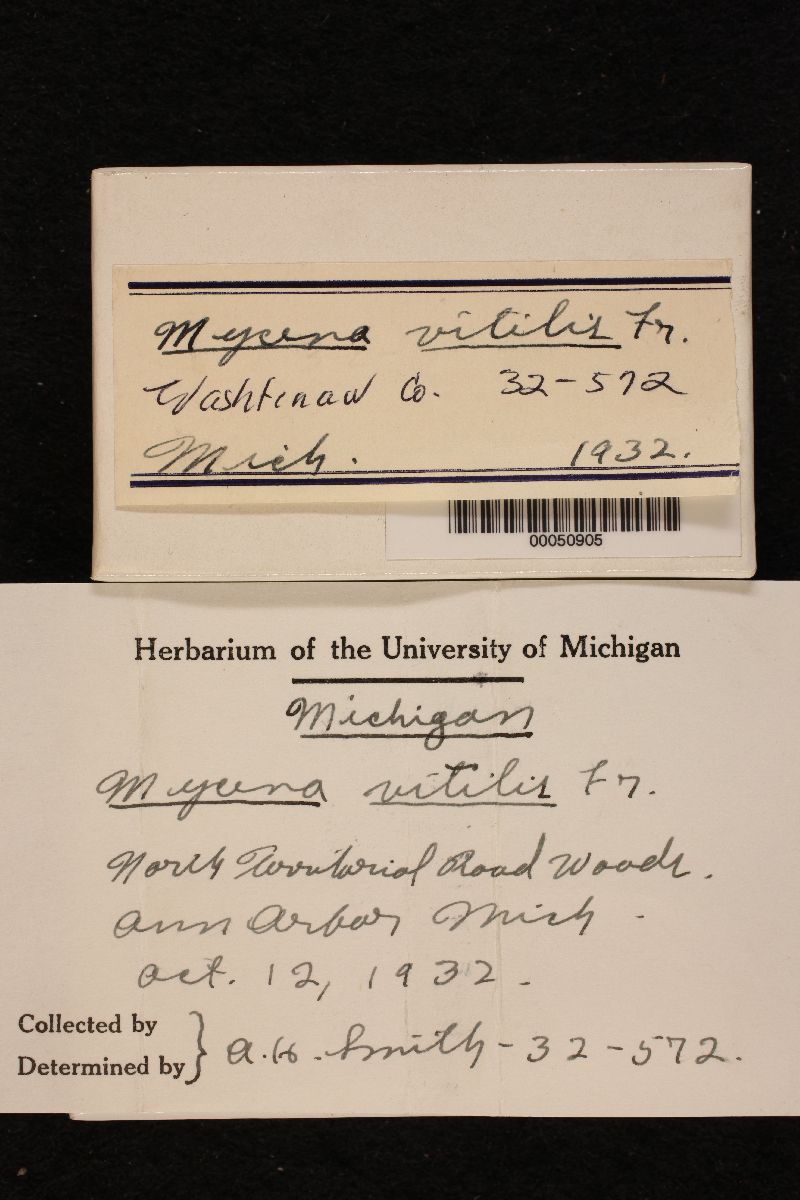 Mycena vitilis Fr.
Washtenaw Co. 32-572
Mich. 1932.
00050905
Herbarium of the University of Michigan
Michigan
Mycena vitilis Fr.
North Territorial Road Woods.
Ann Arbor Mich.
Oct. 12, 1932.
Collected by
Determined by } A.H. Smith-32-572.